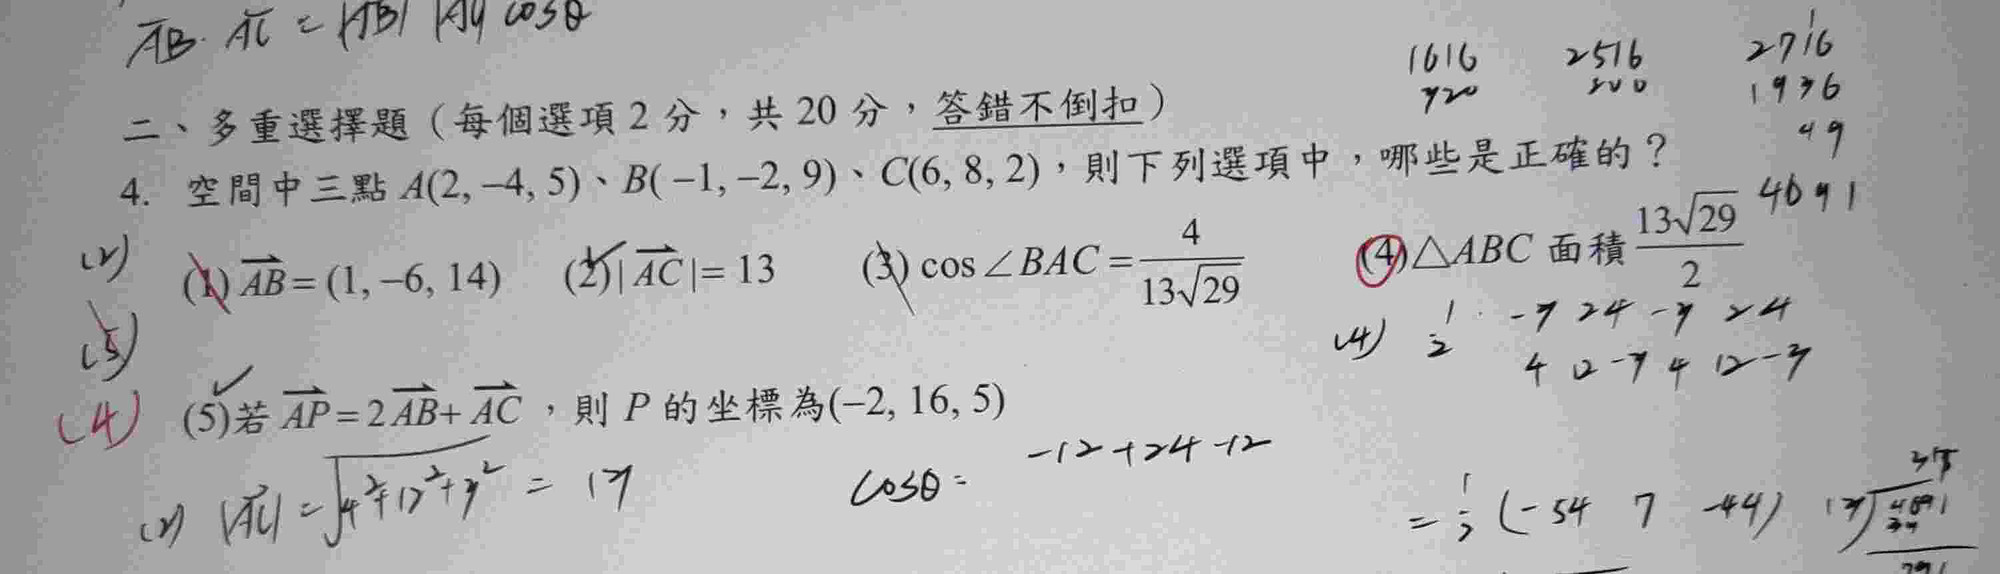 AB · AC = |AB| |AC| cosθ
1616 2516 2716
720 500 1936
49
4691
二、多重選擇題（每個選項 2 分，共 20 分，答錯不倒扣）
4. 空間中三點 A(2, −4, 5)、B( −1, −2, 9)、C(6, 8, 2)，則下列選項中，哪些是正確的？
(2) (1) AB = (1, −6, 14) (2)| AC |= 13 (3) cos∠BAC = 4/(13√29) (4)△ABC 面積 13√29/2
(5)
(4) 1/2 -3 2 4 -3 2 4
4 12 -3 4 12 -3
(4) (5)若 AP = 2 AB + AC ，則 P 的坐標為(−2, 16, 5)
(2) |AC| = √4²+12²+3² = 13 cosθ = -12+24-12
= 1/2 (-54 7 -44)